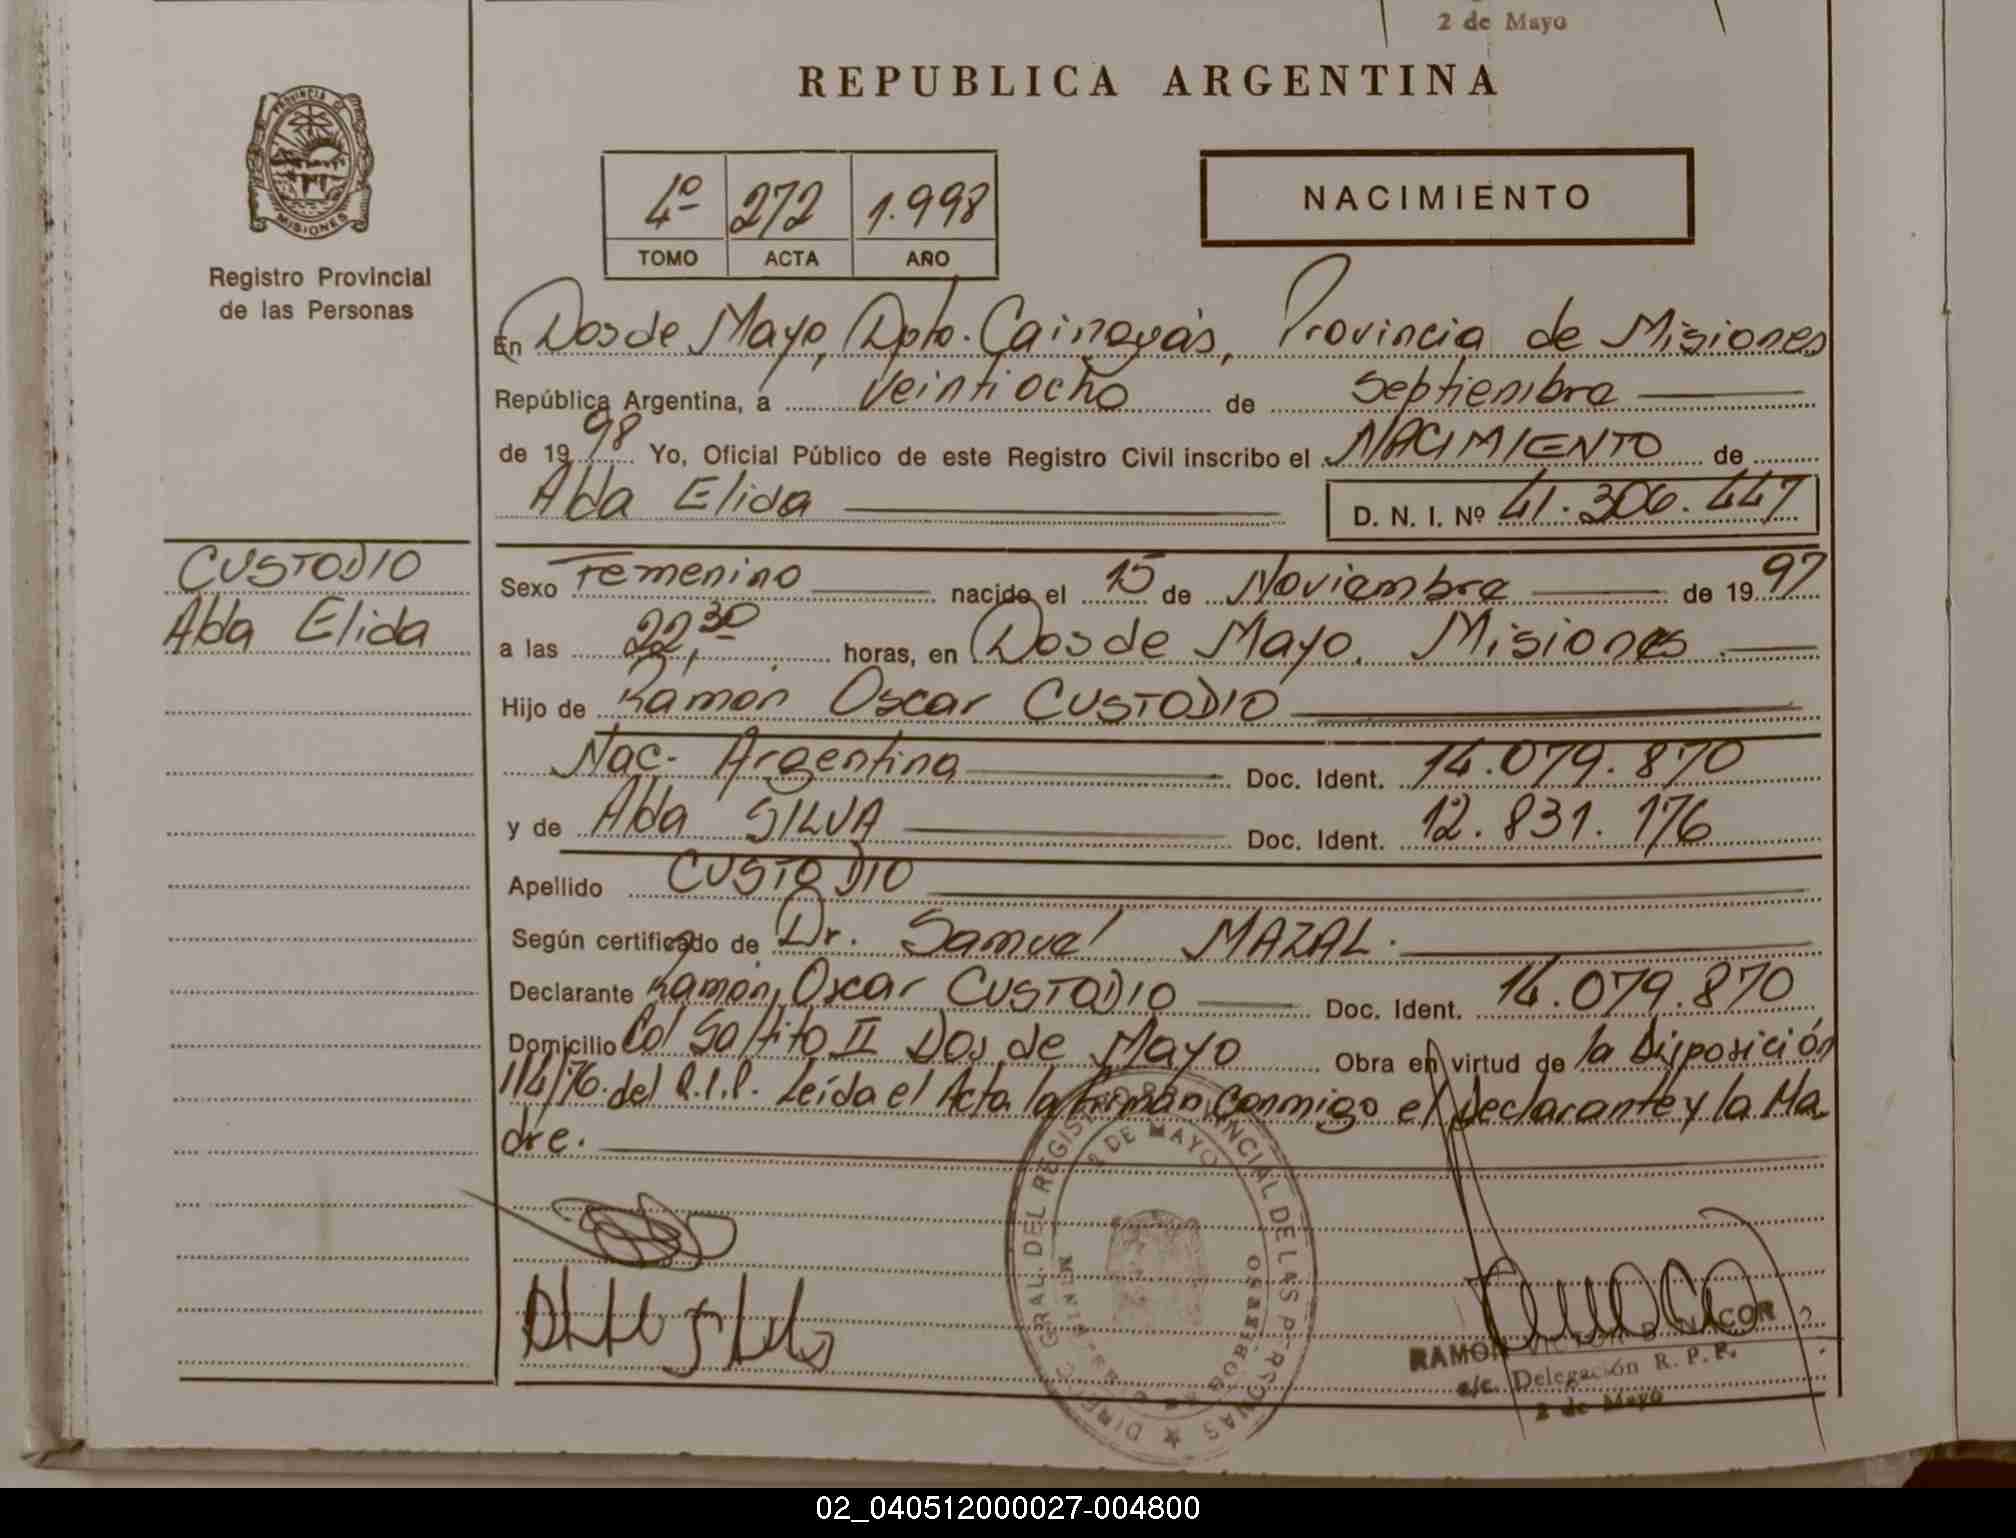 2 de Mayo
REPUBLICA ARGENTINA
PROVINCIA DE
MISIONES
Registro Provincial
de las Personas
4º 272 1.998
TOMO ACTA AÑO
NACIMIENTO
En Dos de Mayo, Dpto. Cainguás, Provincia de Misiones
República Argentina, a Veintiocho de Septiembre
de 1998 Yo, Oficial Público de este Registro Civil inscribo el NACIMIENTO de
Alda Elida D. N. I. Nº 41.306.447
CUSTODIO
Alda Elida
Sexo Femenino nacido el 15 de Noviembre de 1997
a las 22,30 horas, en Dos de Mayo. Misiones
Hijo de Ramón Oscar CUSTODIO
Nac. Argentina Doc. Ident. 14.079.870
y de Alda SILVA Doc. Ident. 12.831.176
Apellido CUSTODIO
Según certificado de Dr. Samuel MAZAL.
Declarante Ramón Oscar CUSTODIO Doc. Ident. 14.079.870
Domicilio Col Saltito II Dos de Mayo Obra en virtud de la Disposición
114/76. del R.P.P. Leída el Acta la firman conmigo el Declarante y la Ma
dre.
DIREC. GRAL. DEL REGISTRO PROVINCIAL DE LAS PERSONAS
2 DE MAYO
MINISTERIO DE GOBIERNO
RAMON VICTOR NACOR
a/c. Delegación R. P. P.
2 de Mayo
02_040512000027-004800